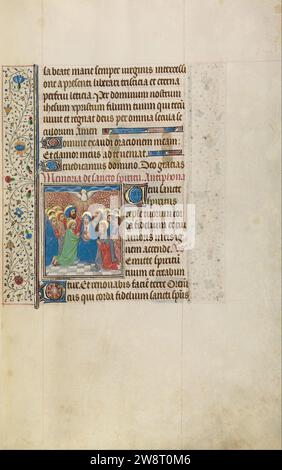 sa beate marie semper virginis intercessi
one a presenti liberari tristicia et eterna
perfrui leticia. Per dominum nostrum
ihesum xpristum filium tuum qui tecū
vivit et regnat deus per omnia secula se
culorum Amen
Domine exaudi orationem meam
Et clamor meus ad te veniat
Benedicamus domino. Deo gracias
Memoria de sancto spiritu. Antiphona
sancte
spiritus
tuorum cor
da fidelium et tui
amoris in eis ig
nem accende. Vs
Emitte spiritū
tuum et creabun
tur. Et renovabis faciē terre Or
us qui corda fidelium sancti spūs
alamy
alamy
Image ID: 2W8T0M6
www.alamy.com